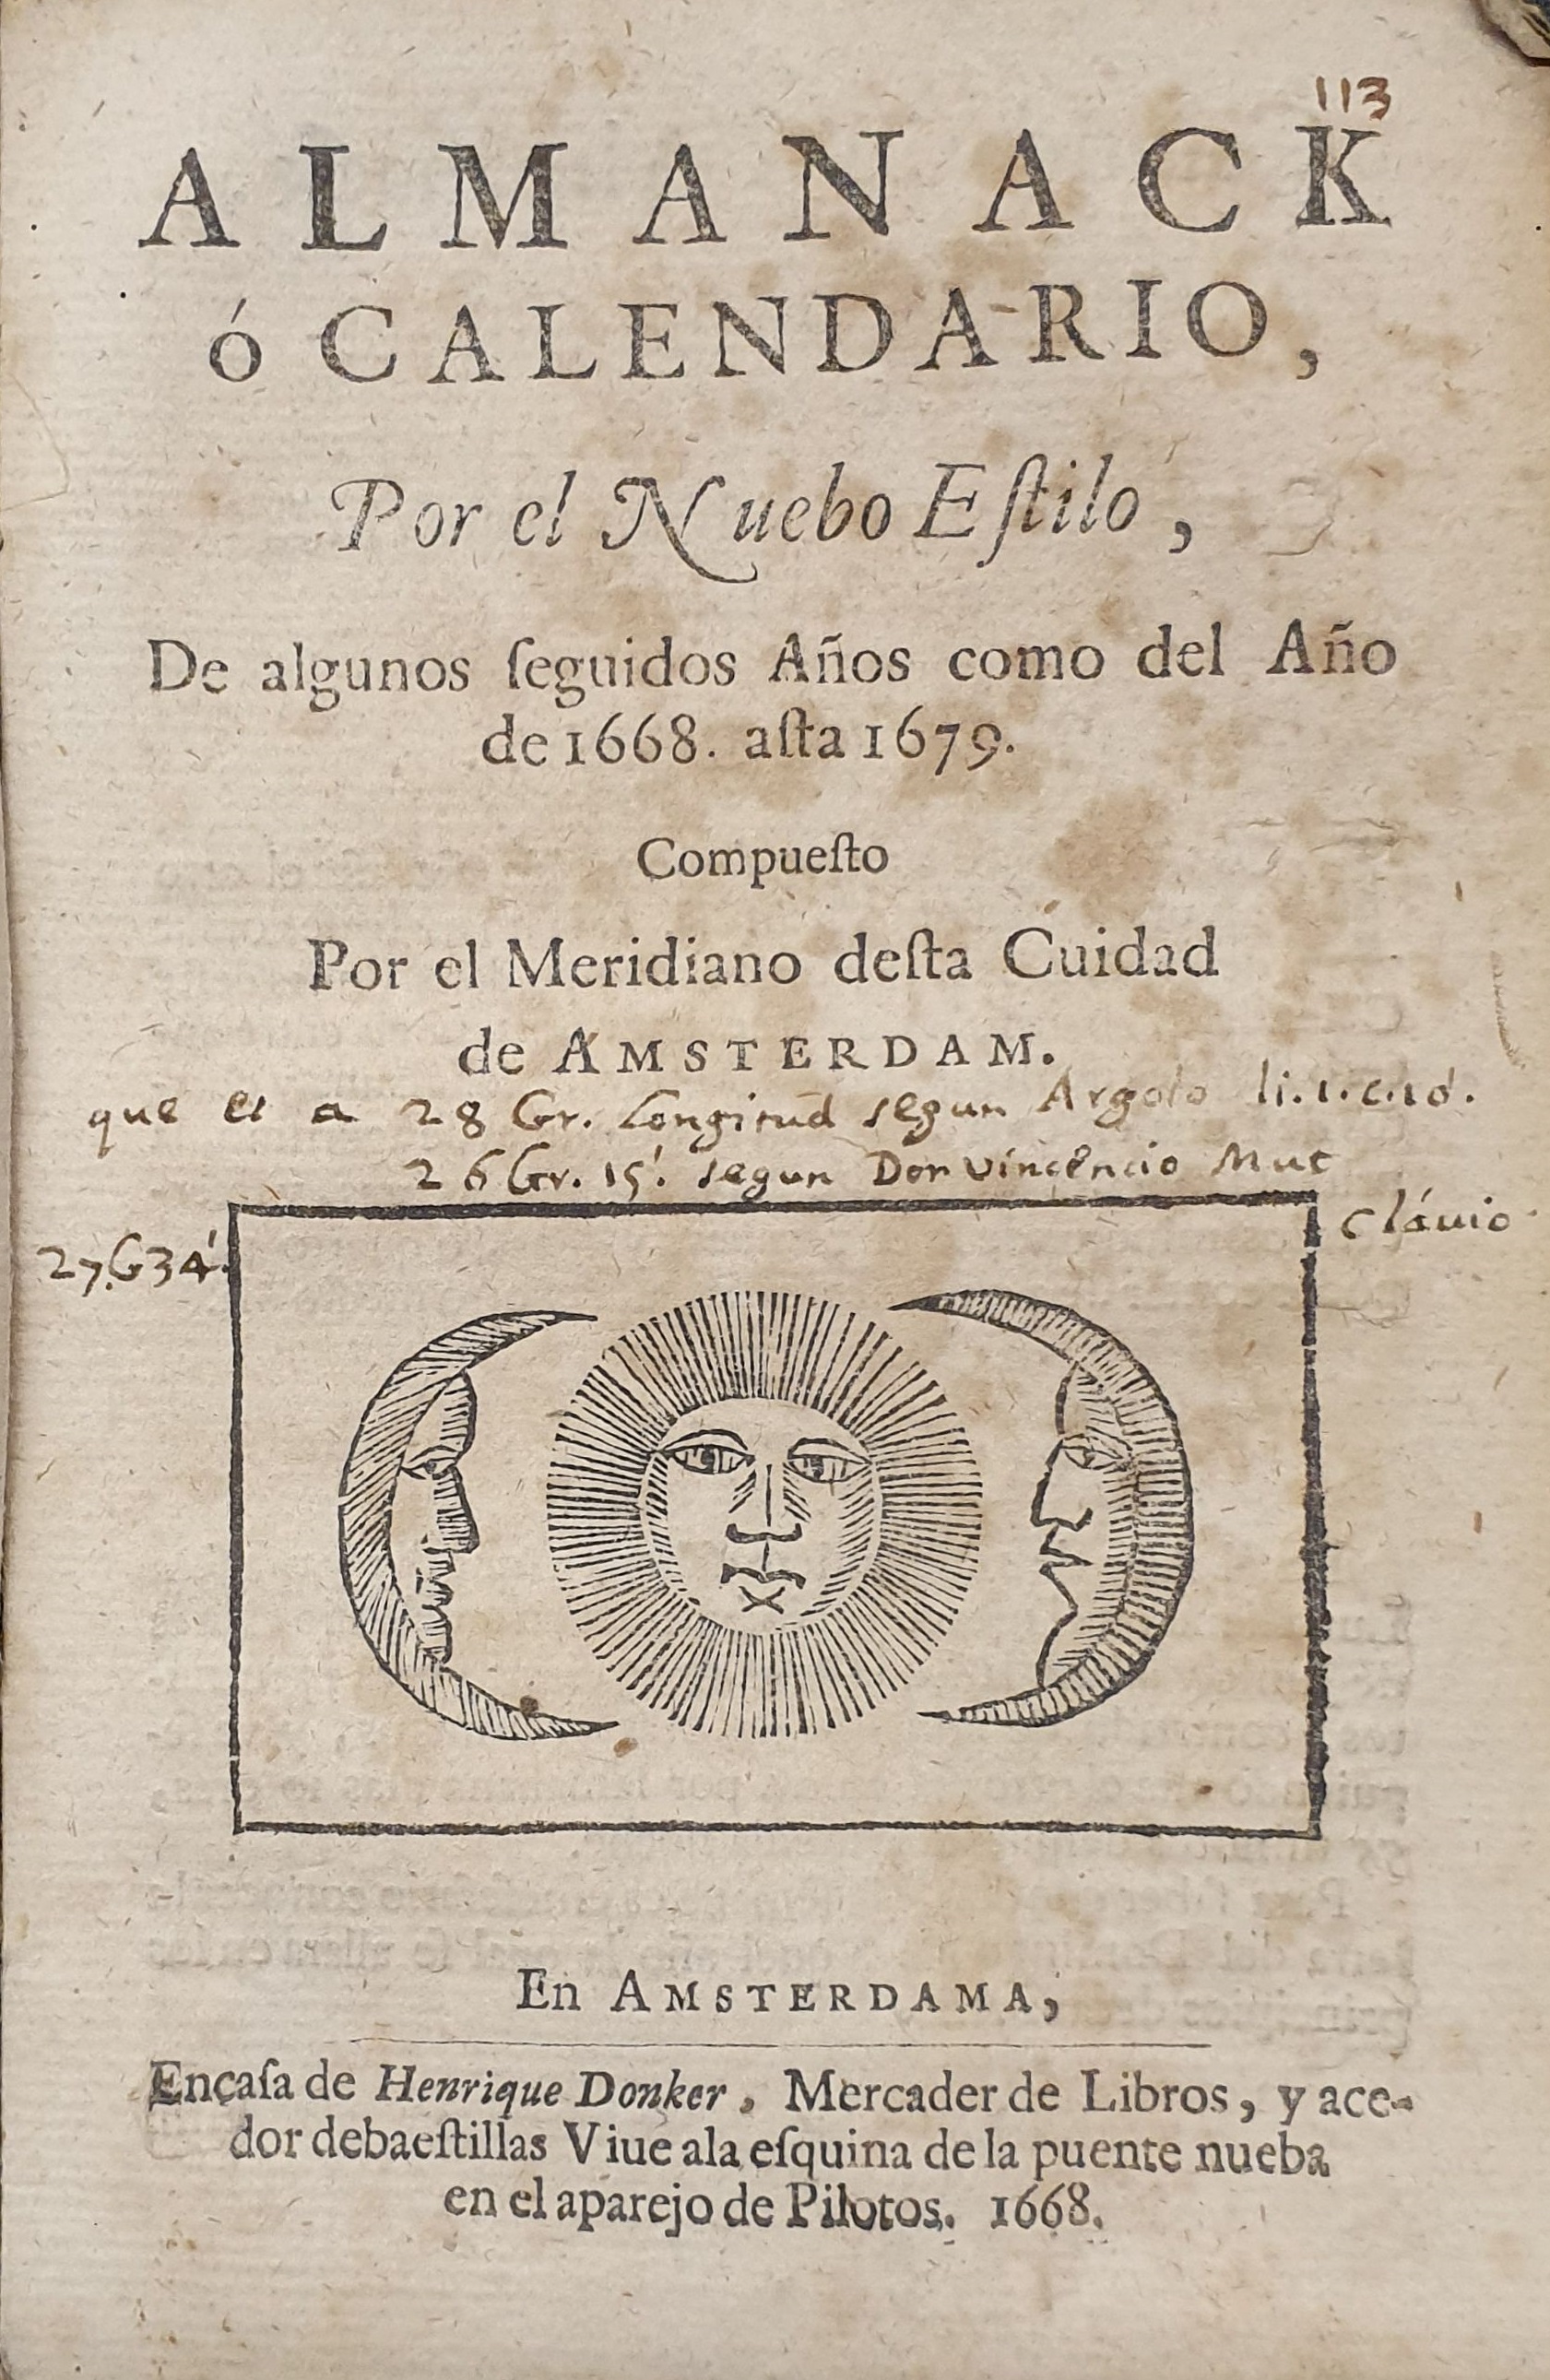 113
ALMANACK
ó CALENDARIO,
Por el Nuebo Eſtilo,
De algunos ſeguidos Años como del Año
de 1668. aſta 1679.
Compueſto
Por el Meridiano deſta Cuidad
de AMSTERDAM.
que es a 28 Gr. Longitud segun Argolo li. 1. c.
26 Gr. 15'. segun Don Vincencio Mut
27.G 34'. Clávio
En AMSTERDAMA,
Ençaſa de Henrique Donker, Mercader de Libros, y ace-
dor debaeſtillas Viue ala eſquina de la puente nueba
en el aparejo de Pilotos. 1668.